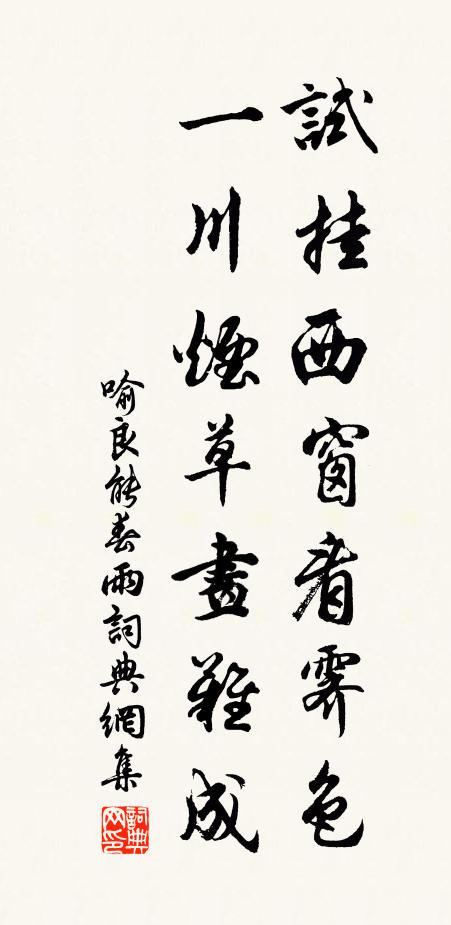 試挂西窗看霽色
一川煙草畫難成
喻良能春雨詞典網集
詞典网印